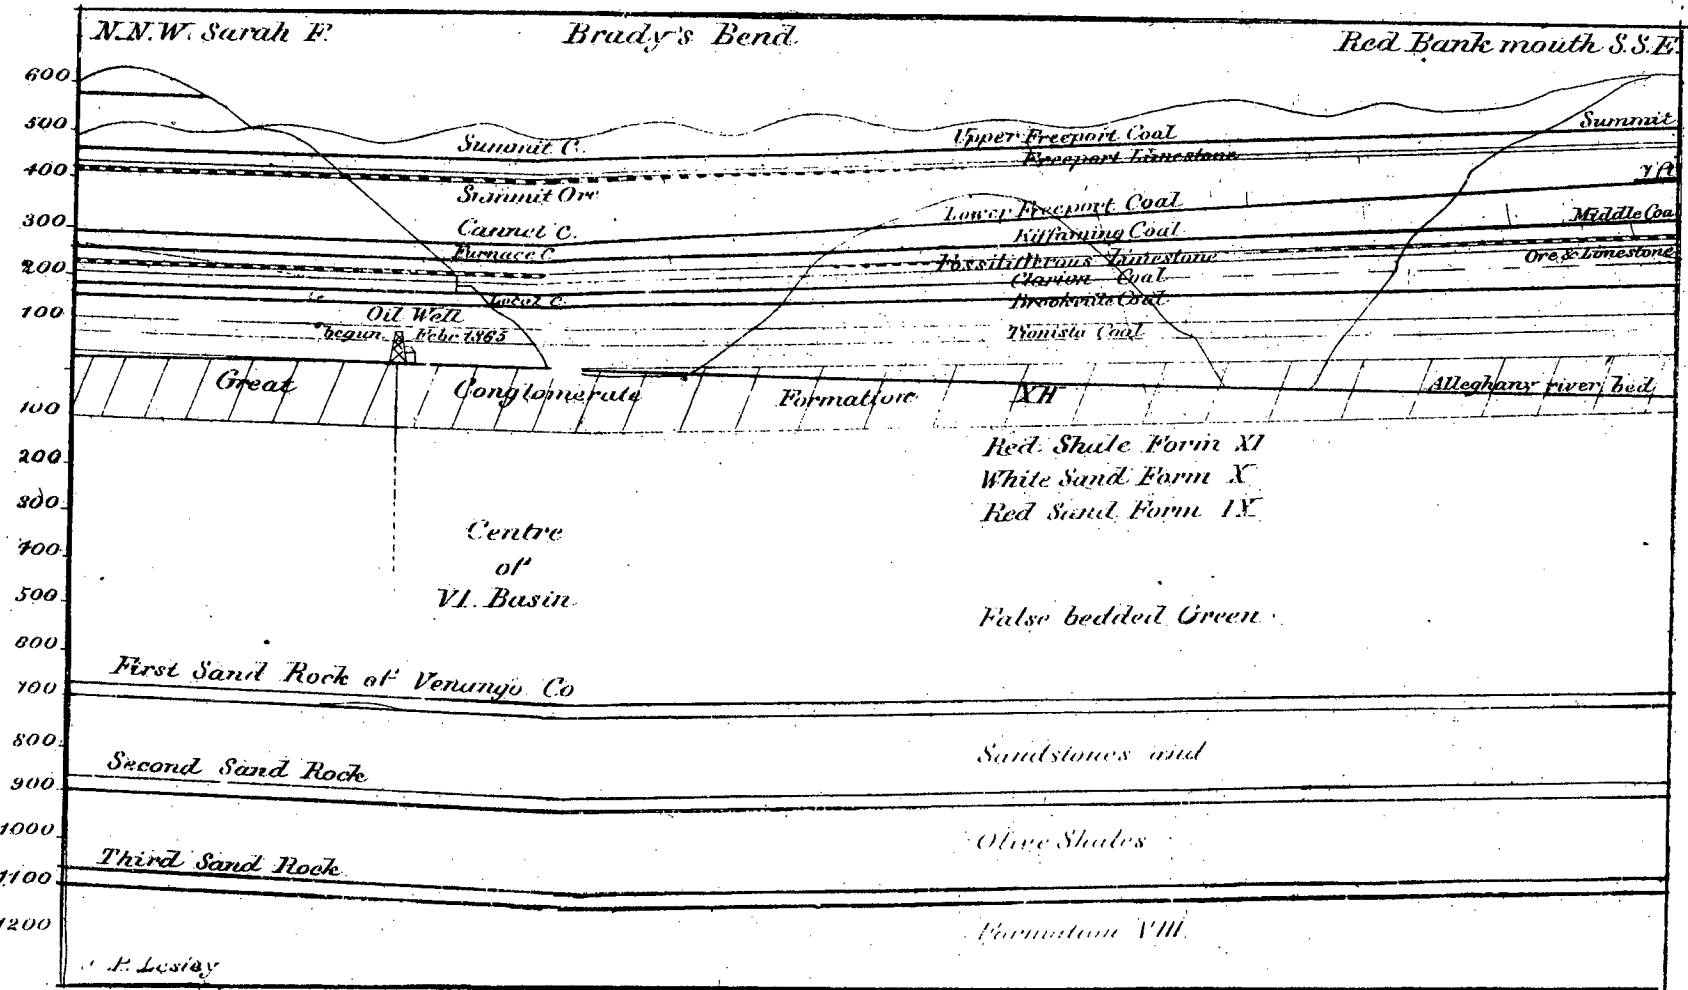 N.N.W. Sarah F.
Brady's Bend
Red Bank mouth S.S.E.
600
500
400
300
200
100
100
200
300
400
500
600
700
800
900
1000
1100
1200
Summit C.
Summit Ore
Cannel C.
Furnace C.
Local C.
Oil Well
begun Febr 1865
Upper Freeport Coal
Freeport Limestone
Lower Freeport Coal
Kittanning Coal
Fossiliferous Limestone
Clarion Coal
Brookville Coal
Tionista Coal
Summit
7 ft
Middle Coal
Ore & Limestone
Great Conglomerate Formation XII
Alleghany river bed
Red Shale Form XI
White Sand Form X
Red Sand Form IX
Centre
of
VI. Basin
False bedded Green
First Sand Rock of Venango Co
Sandstones and
Second Sand Rock
Olive Shales
Third Sand Rock
Formation VIII.
P. Lesley